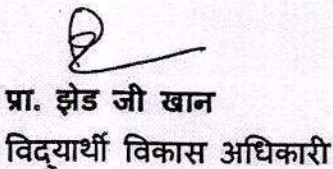 प्रा. झेड जी खान
विद्यार्थी विकास अधिकारी